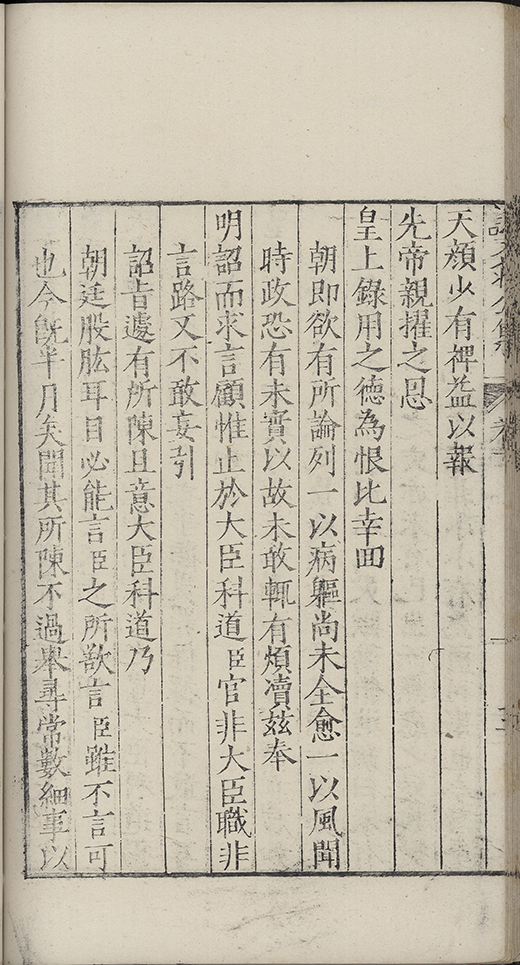 天顏少有裨益以報
先帝親擢之恩
皇上錄用之德為恨比幸囬
朝即欲有所論列一以病軀尚未全愈一以風聞
時政恐有未實以故未敢輒有煩瀆玆奉
明詔而求言顧惟止於大臣科道臣官非大臣職非
言路又不敢妄引
詔旨遽有所陳且意大臣科道乃
朝廷股肱耳目必能言臣之所欲言臣雖不言可
也今旣半月矣聞其所陳不過舉尋常數細事以